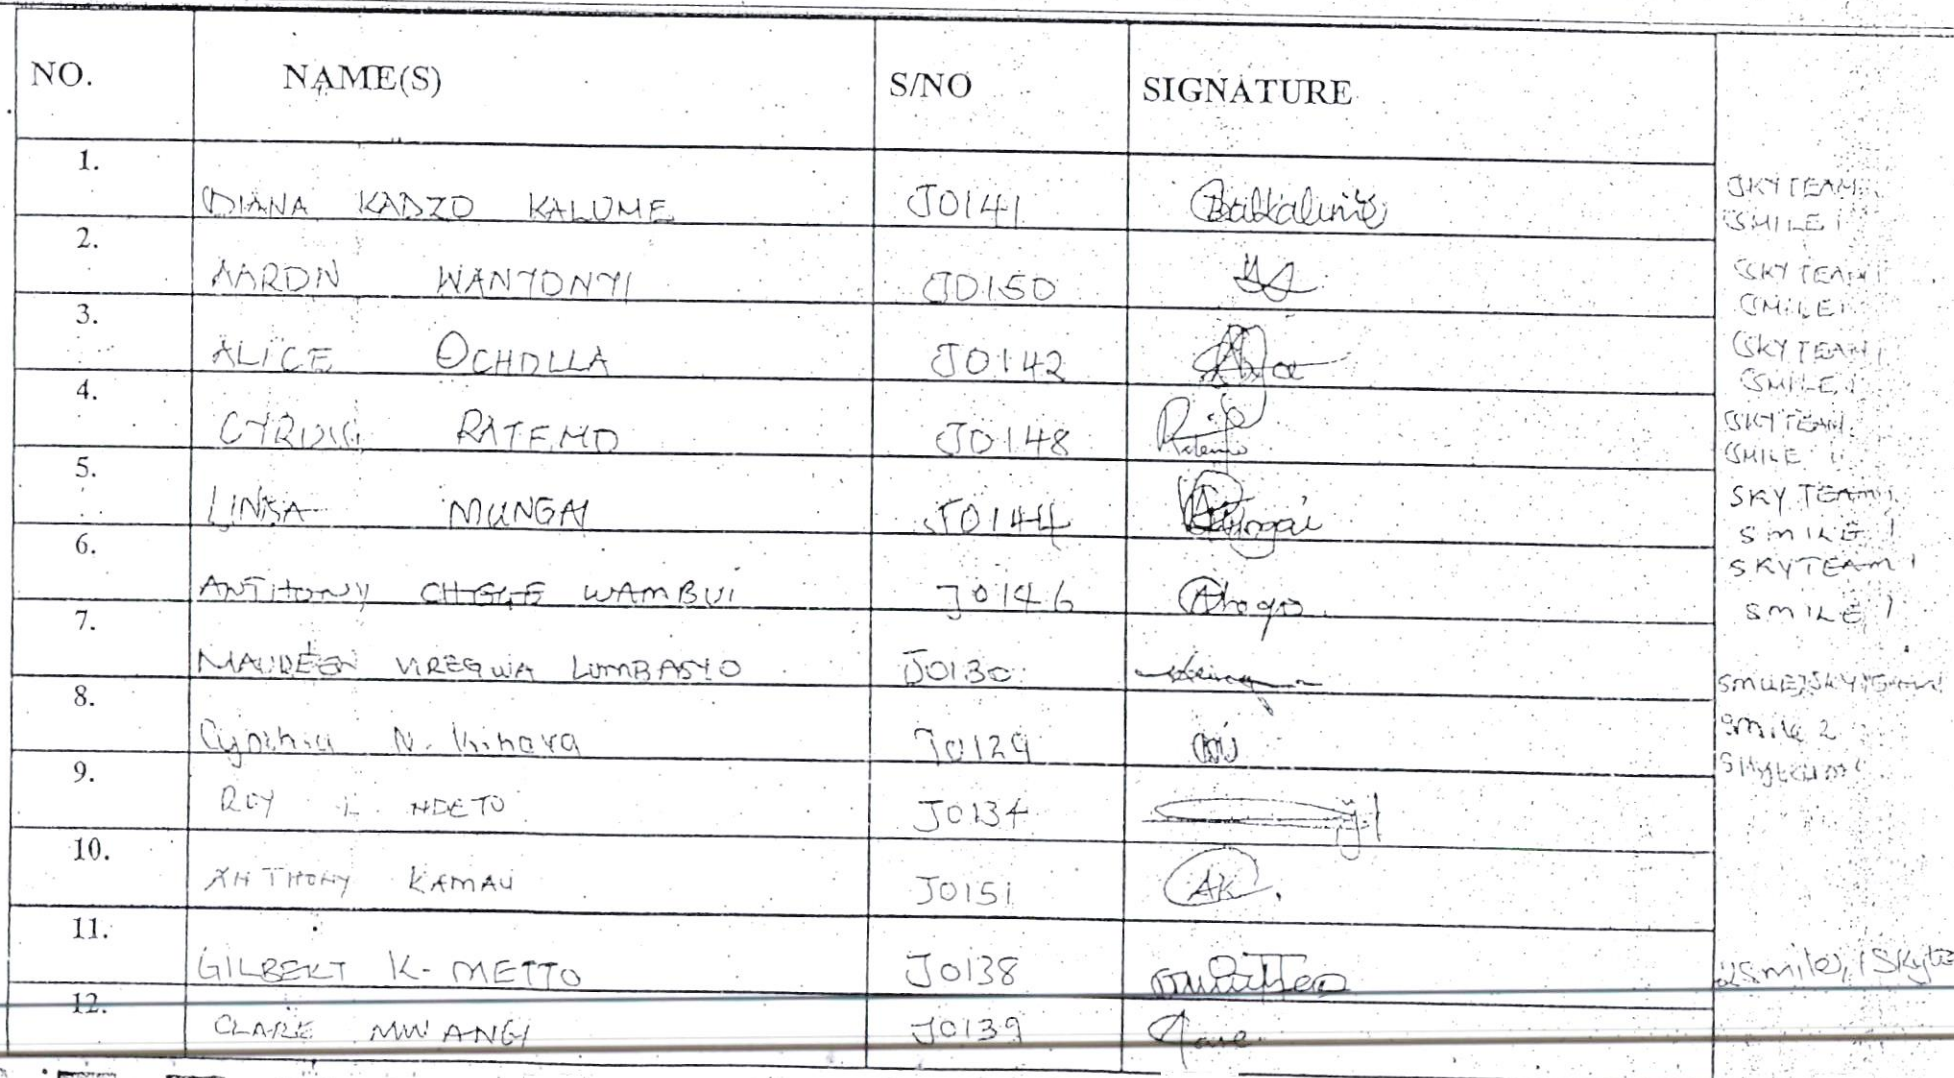 NO. NAME(S) S/NO SIGNATURE
1. DIANA KADZO KALUME J0141 SKYTEAM 1
SMILE 1
2. AARON WANYONYI J0150 SKYTEAM 1
SMILE 1
3. ALICE OCHOLLA J0142 SKYTEAM 1
SMILE 1
4. RATEMO J0148 Ratemo SKYTEAM
SMILE 1
5. LINDA MUNGAI J0144 Mungai SKY TEAM 1
SMILE 1
6. ANTHONY CHEGE WAMBUI J0146 SKYTEAM 1
SMILE 1
7. MAUREEN VIREGWA LUMBASYO J0130
8. Cynthia N. J0129 Smile 2
Skyteam 1
9. ROY L NDETO J0134
10. ANTHONY KAMAU J0151 AK
11. GILBERT K- METTO J0138 2Smile, 1Skyte
12. CLARE MWANGI J0139